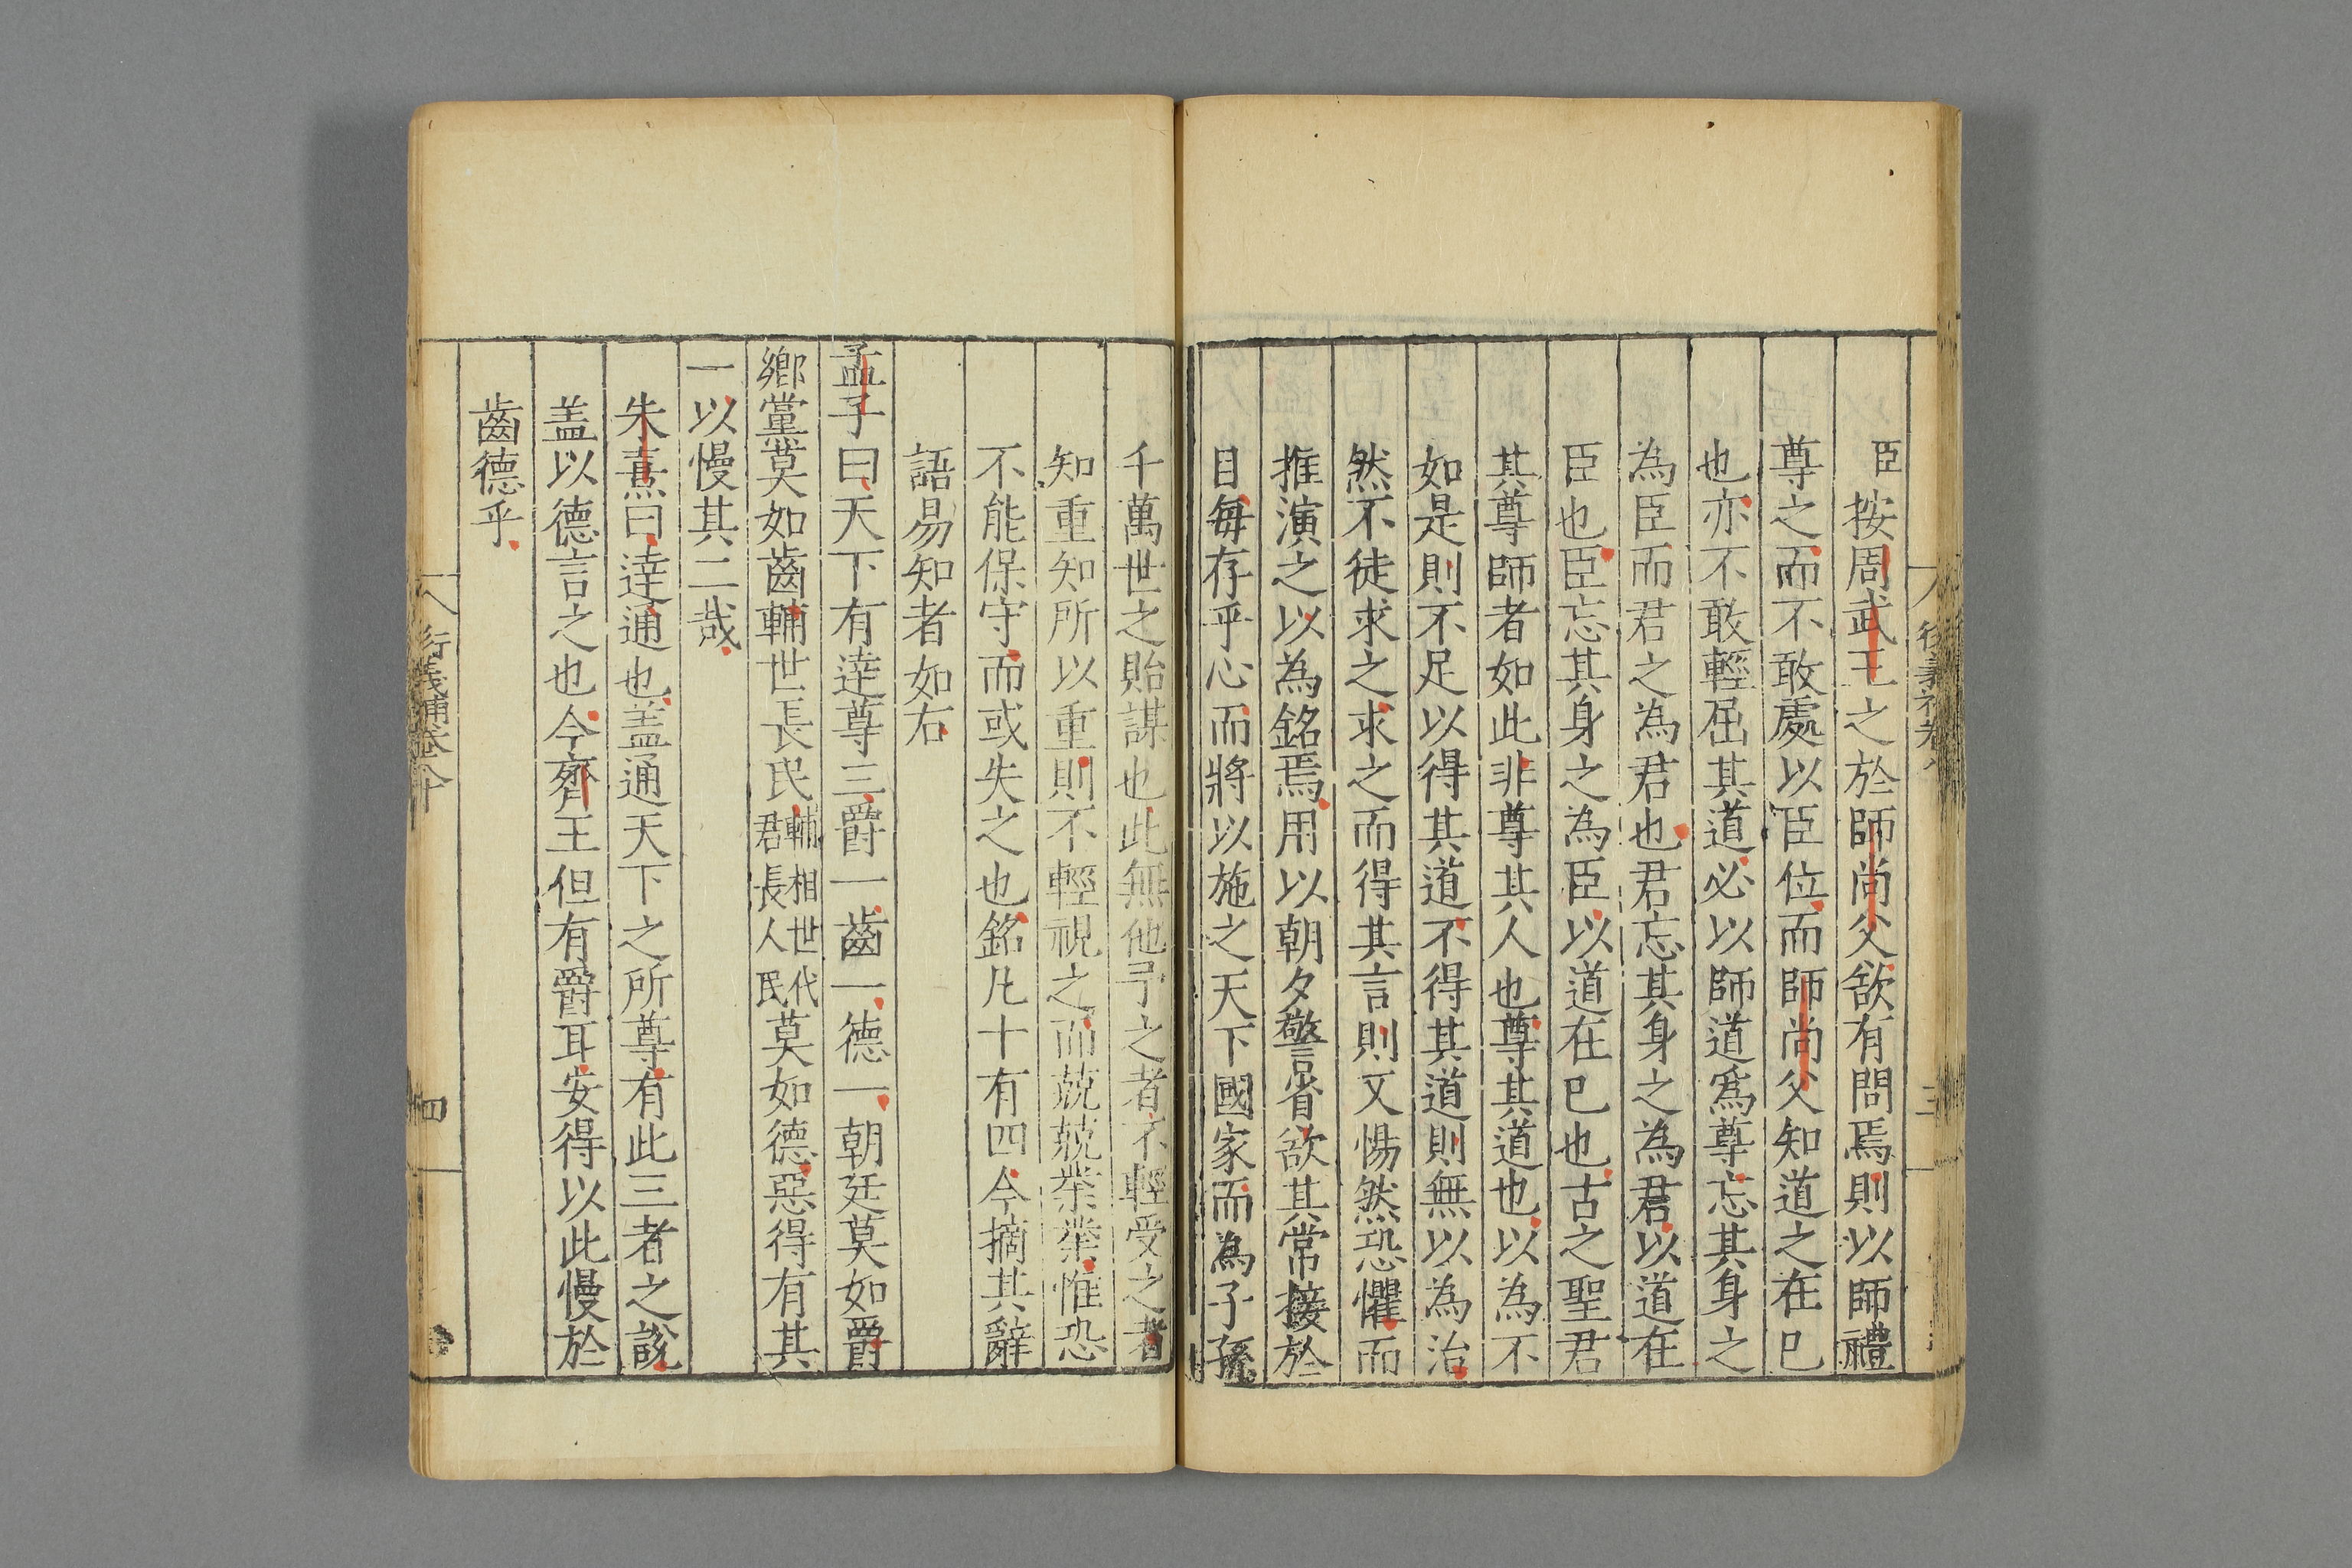 臣按周武王之於師尚父欲有問焉則以師禮
尊之而不敢處以臣位而師尚父知道之在已
也亦不敢輕屈其道必以師道爲尊忘其身之
為臣而君之為君也君忘其身之為君以道在
臣也臣忘其身之為臣以道在已也古之聖君
其尊師者如此非尊其人也尊其道也以為不
如是則不足以得其道不得其道則無以為治
然不徒求之求之而得其言則又惕然恐懼而
推演之以為銘焉用以朝夕警省欲其常接於
目每存乎心而將以施之天下國家而為子孫
千萬世之貽謀也此無他予之者不輕受之者
知重知所以重則不輕視之而兢兢業業惟恐
不能保守而或失之也銘凡十有四今摘其辭
語易知者如右
孟子曰天下有達尊三爵一齒一德一朝廷莫如爵
鄉黨莫如齒輔世長民輔相世代君長人民莫如德惡得有其
一以慢其二哉
朱熹曰達通也盖通天下之所尊有此三者之說
盖以德言之也今齊王但有爵耳安得以此慢於
齒德乎
衍義補卷八十
四